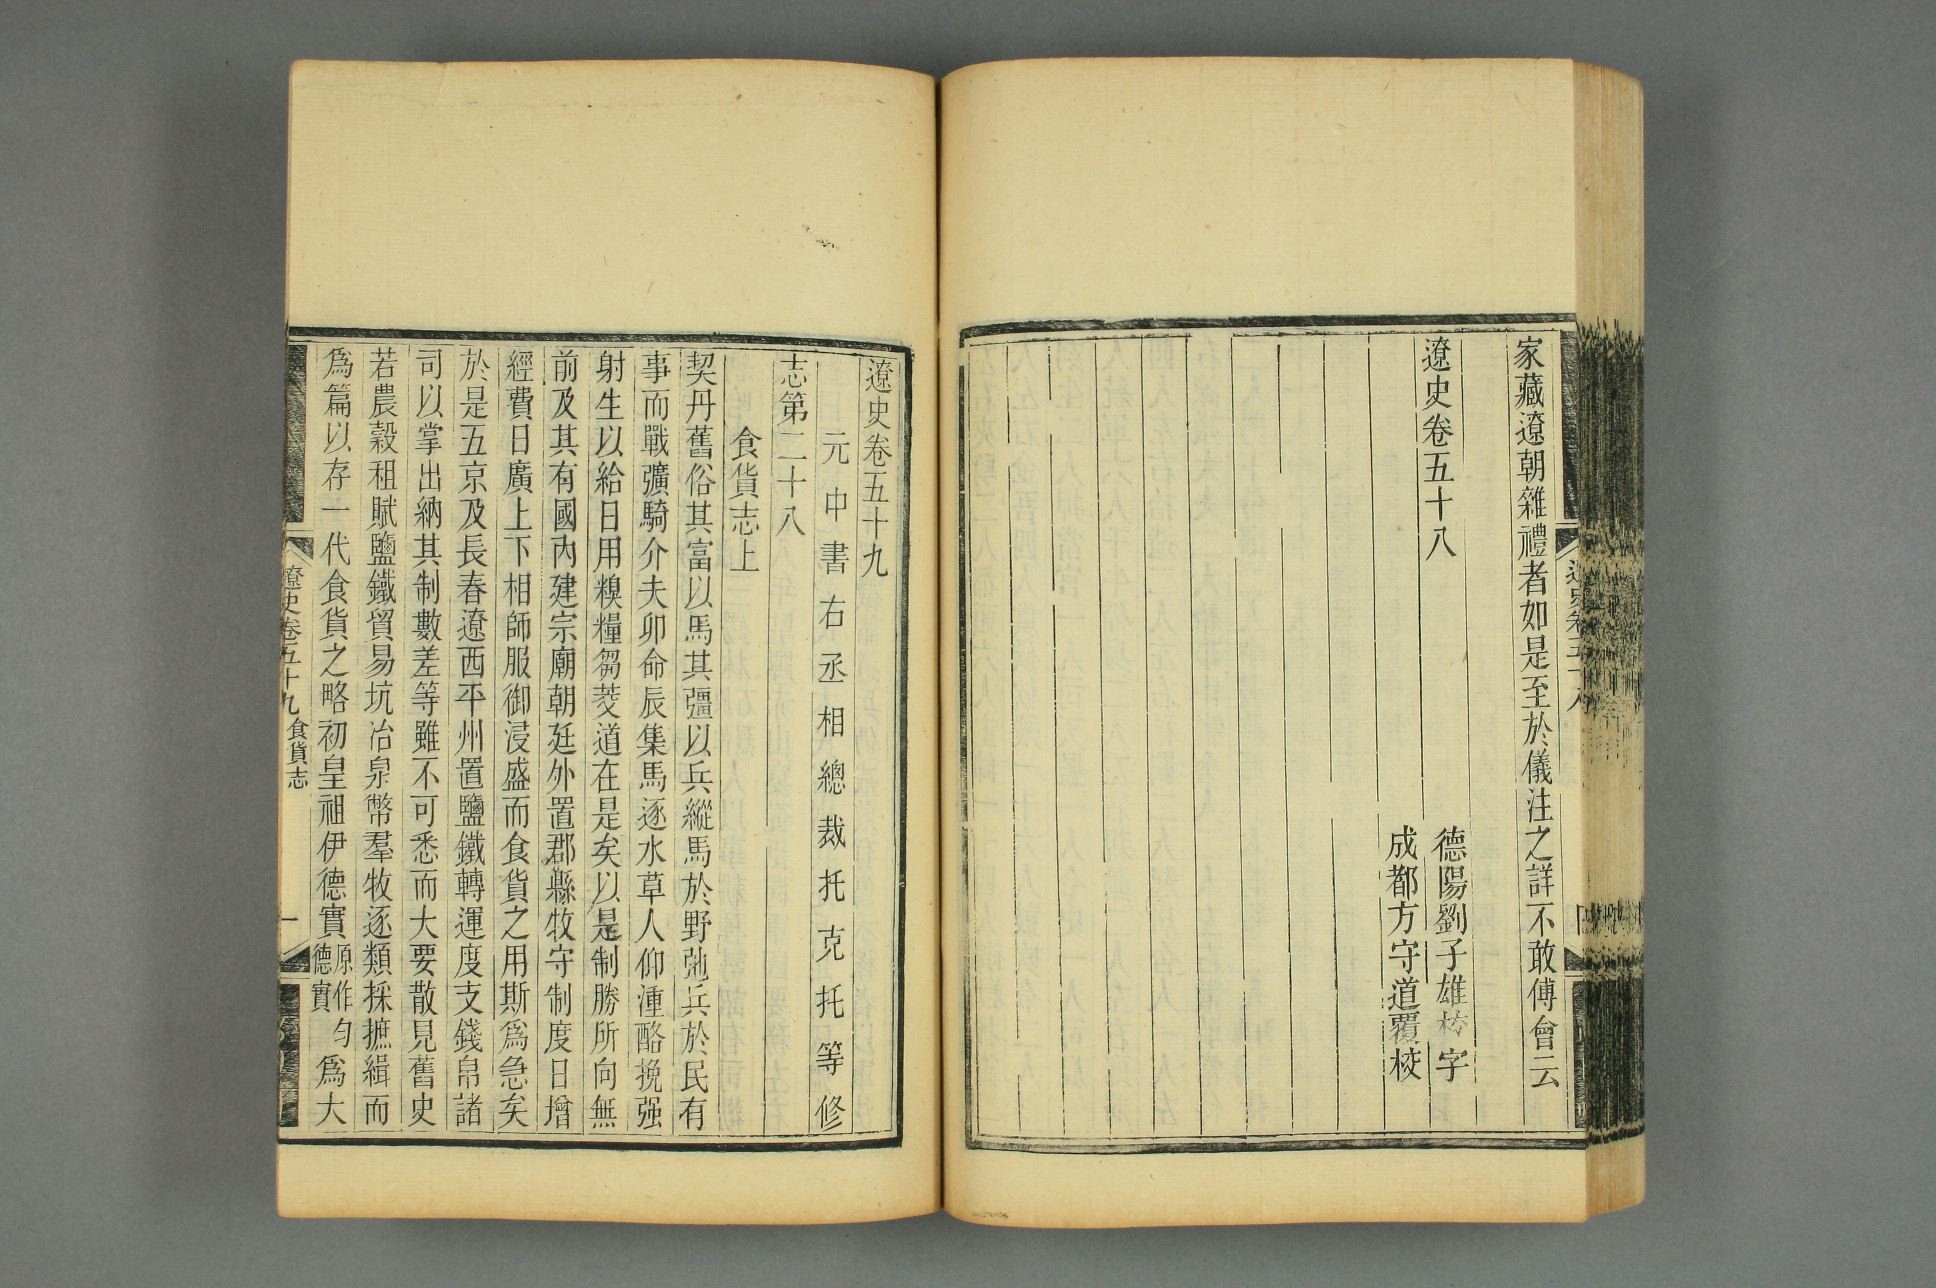 家藏遼朝雜禮者如是至於儀注之詳不敢傅會云
遼史卷五十八
德陽劉子雄校字
成都方守道覆校
遼史卷五十八
遼史卷五十九
元中書右丞相總裁托克托等修
志第二十八
食貨志上
契丹舊俗其富以馬其彊以兵縱馬於野弛兵於民有
事而戰彍騎介夫卯命辰集馬逐水草人仰湩酪挽强
射生以給日用糗糧芻茭道在是矣以是制勝所向無
前及其有國內建宗廟朝廷外置郡縣牧守制度日增
經費日廣上下相師服御浸盛而食貨之用斯爲急矣
於是五京及長春遼西平州置鹽鐵轉運度支錢帛諸
司以掌出納其制數差等雖不可悉而大要散見舊史
若農穀租賦鹽鐵貿易坑冶泉幣羣牧逐類採摭緝而
爲篇以存一代食貨之略初皇祖伊德實原作勻德實爲大
遼史卷五十九 食貨志 一